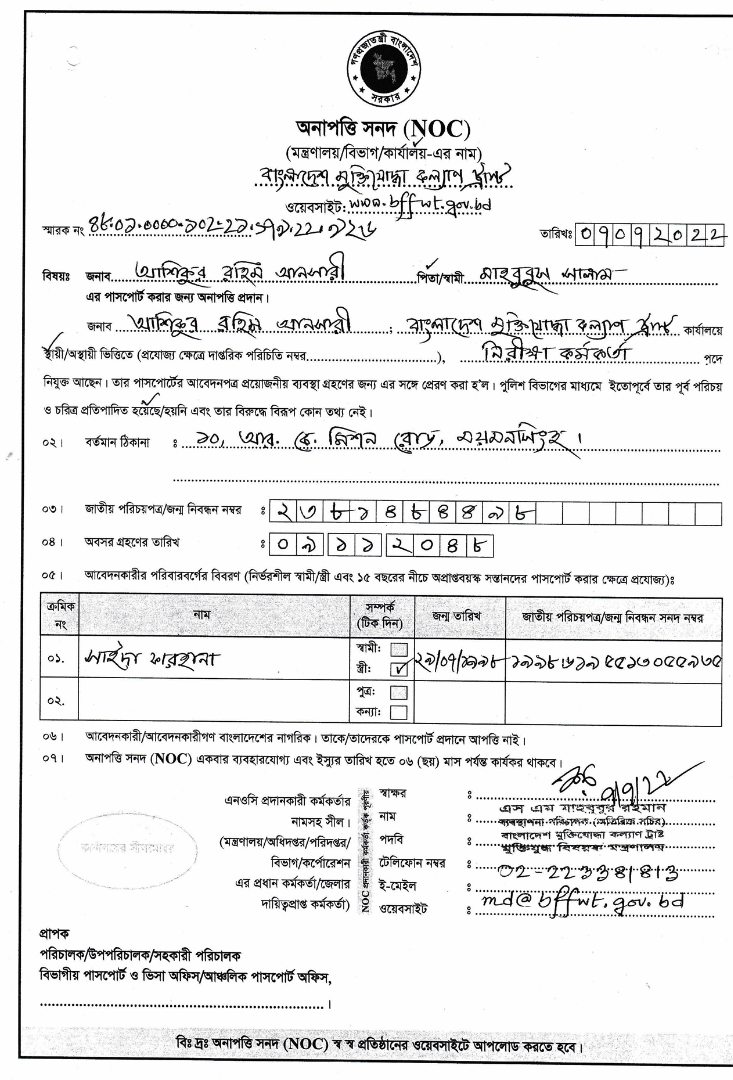 গণপ্রজাতন্ত্রী বাংলাদেশ
সরকার
অনাপত্তি সনদ (NOC)
(মন্ত্রণালয়/বিভাগ/কার্যালয়-এর নাম)
বাংলাদেশ মুক্তিযোদ্ধা কল্যাণ ট্রাস্ট
ওয়েবসাইট: www.bffwt.gov.bd
স্মারক নং
তারিখঃ 09092022
বিষয়ঃ জনাব আশিকুর রহিম আনসারী পিতা/স্বামী মাহবুবুল আলাম
এর পাসপোর্ট করার জন্য অনাপত্তি প্রদান।
জনাব আশিকুর রহিম আনসারী ; বাংলাদেশ মুক্তিযোদ্ধা কল্যাণ ট্রাস্ট কার্যালয়ে
স্থায়ী/অস্থায়ী ভিত্তিতে (প্রযোজ্য ক্ষেত্রে দাপ্তরিক পরিচিতি নম্বর..............), নিরীক্ষা কর্মকর্তা পদে
নিযুক্ত আছেন। তার পাসপোর্টের আবেদনপত্র প্রয়োজনীয় ব্যবস্থা গ্রহণের জন্য এর সঙ্গে প্রেরণ করা হ'ল। পুলিশ বিভাগের মাধ্যমে ইতোপূর্বে তার পূর্ব পরিচয়
ও চরিত্র প্রতিপাদিত হয়েছে/হয়নি এবং তার বিরুদ্ধে বিরূপ কোন তথ্য নেই।
০২। বর্তমান ঠিকানা ঃ ১০, আর. কে. মিশন রোড, ময়মনসিংহ।
০৩। জাতীয় পরিচয়পত্র/জন্ম নিবন্ধন নম্বর ঃ ২৩৮১৪৮৪৪৭৮
০৪। অবসর গ্রহণের তারিখ ঃ ০৯১১২০৪৮
০৫। আবেদনকারীর পরিবারবর্গের বিবরণ (নির্ভরশীল স্বামী/স্ত্রী এবং ১৫ বছরের নীচে অপ্রাপ্তবয়স্ক সন্তানদের পাসপোর্ট করার ক্ষেত্রে প্রযোজ্য)ঃ
ক্রমিক নং নাম সম্পর্ক (টিক দিন) জন্ম তারিখ জাতীয় পরিচয়পত্র/জন্ম নিবন্ধন সনদ নম্বর
০১. সাইদা ফারহানা স্বামী:
স্ত্রী: ✓
০২. পুত্র:
কন্যা:
০৬। আবেদনকারী/আবেদনকারীগণ বাংলাদেশের নাগরিক। তাকে/তাদেরকে পাসপোর্ট প্রদানে আপত্তি নাই।
০৭। অনাপত্তি সনদ (NOC) একবার ব্যবহারযোগ্য এবং ইস্যুর তারিখ হতে ০৬ (ছয়) মাস পর্যন্ত কার্যকর থাকবে।
এনওসি প্রদানকারী কর্মকর্তার
নামসহ সীল।
(মন্ত্রণালয়/অধিদপ্তর/পরিদপ্তর/
বিভাগ/কর্পোরেশন
এর প্রধান কর্মকর্তা/জেলার
দায়িত্বপ্রাপ্ত কর্মকর্তা)
NOC প্রদানকারী কর্তৃক পূরণীয়
স্বাক্ষর ঃ 9/9/22
নাম ঃ এস এম মাহবুবুর রহমান
ব্যবস্থাপনা পরিচালক (অতিরিক্ত সচিব)
পদবি ঃ বাংলাদেশ মুক্তিযোদ্ধা কল্যাণ ট্রাষ্ট
মুক্তিযুদ্ধ বিষয়ক মন্ত্রণালয়
টেলিফোন নম্বর ঃ 02-223381813
ই-মেইল ঃ md@bffwt.gov.bd
ওয়েবসাইট ঃ
প্রাপক
পরিচালক/উপপরিচালক/সহকারী পরিচালক
বিভাগীয় পাসপোর্ট ও ভিসা অফিস/আঞ্চলিক পাসপোর্ট অফিস,
..............................।
বিঃ দ্রঃ অনাপত্তি সনদ (NOC) স্ব স্ব প্রতিষ্ঠানের ওয়েবসাইটে আপলোড করতে হবে।